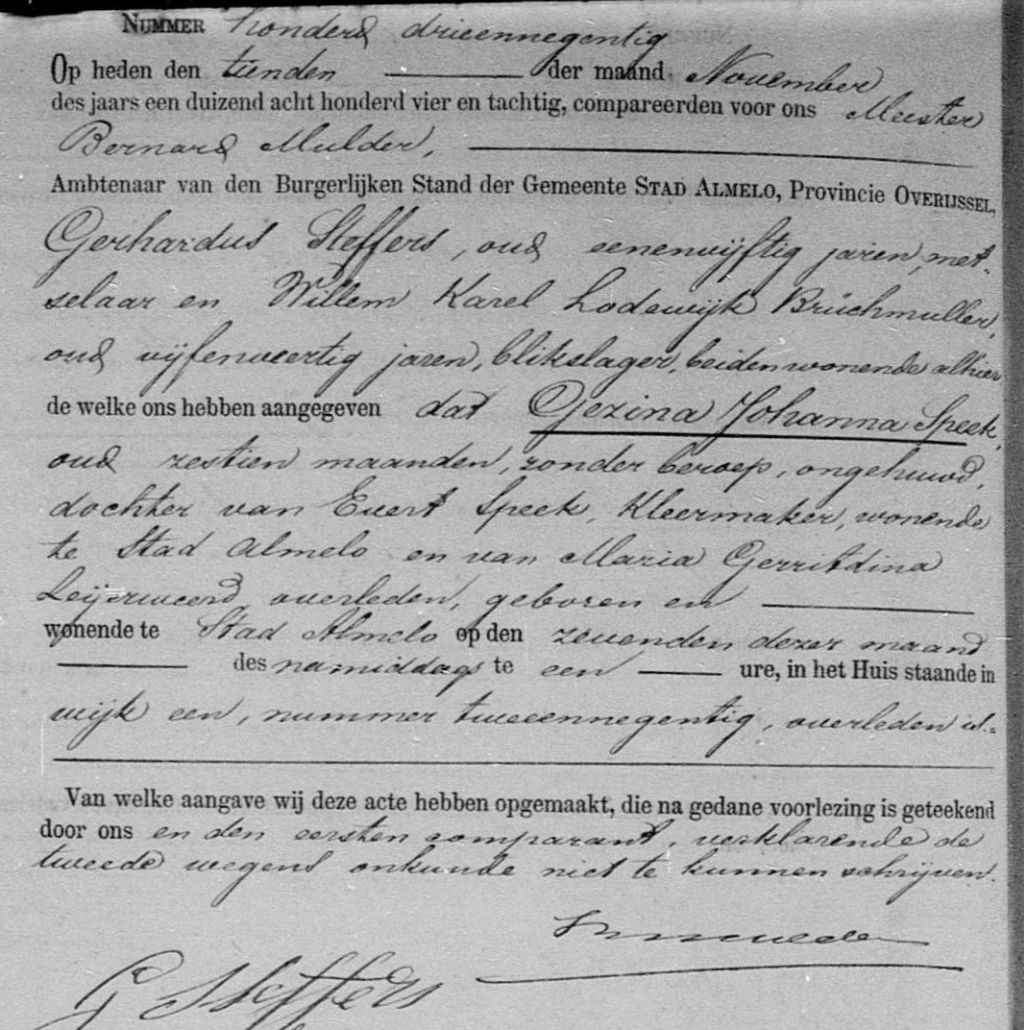 NUMMER honderd drieennegentig
Op heden den tienden der maand November
des jaars een duizend acht honderd vier en tachtig, compareerden voor ons Meester
Bernard Mulder,
Ambtenaar van den Burgerlijken Stand der Gemeente STAD ALMELO, Provincie OVERIJSSEL,
Gerhardus Steffers, oud eenenvijftig jaren, met-
selaar en Willem Karel Lodewijk Brúchmuller,
oud vijfenveertig jaren, blikslager, beiden wonende alhier
de welke ons hebben aangegeven dat Gezina Johanna Speek,
oud zestien maanden, zonder beroep, ongehuwd,
dochter van Evert Speek, Kleermaker, wonende
te Stad Almelo en van Maria Gerritdina
Leijerweerd overleden, geboren en
wonende te Stad Almelo op den zevenden dezer maand
des namiddags te een ure, in het Huis staande in
wijk een, nummer tweeennegentig, overleden is.
Van welke aangave wij deze acte hebben opgemaakt, die na gedane voorlezing is geteekend
door ons en den eersten comparant, verklarende de
tweede wegens onkunde niet te kunnen schrijven.
G Steffers